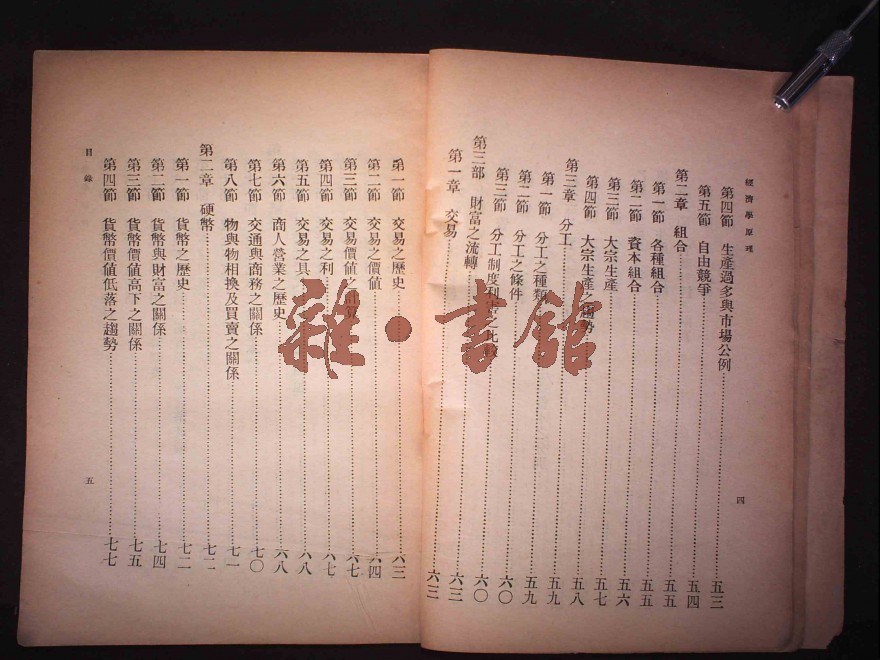 經濟學原理
第四節 生產過多與市場公例 五三
第五節 自由競爭 五四
第二章 組合 五五
第一節 各種組合 五五
第二節 資本組合 五六
第三節 大宗生產 五七
第四節 大宗生產之趨勢 五八
第三章 分工
第一節 分工之種類 五九
第二節 分工之條件 五九
第三節 分工制度利 之比較 六〇
第三部 財富之流轉 六〇
第一章 交易 六三
四
第一節 交易之歷史 六三
第二節 交易之價值 六四
第三節 交易價值之 六七
第四節 交易之利 六七
第五節 交易之具 六八
第六節 商人營業之歷史 六八
第七節 交通與商務之關係 七〇
第八節 物與物相換及買賣之關係 七一
第二章 硬幣 七二
第一節 貨幣之歷史 七二
第二節 貨幣與財富之關係 七四
第三節 貨幣價値高下之關係 七五
第四節 貨幣價値低落之趨勢 七七
目錄
五
雜·書館